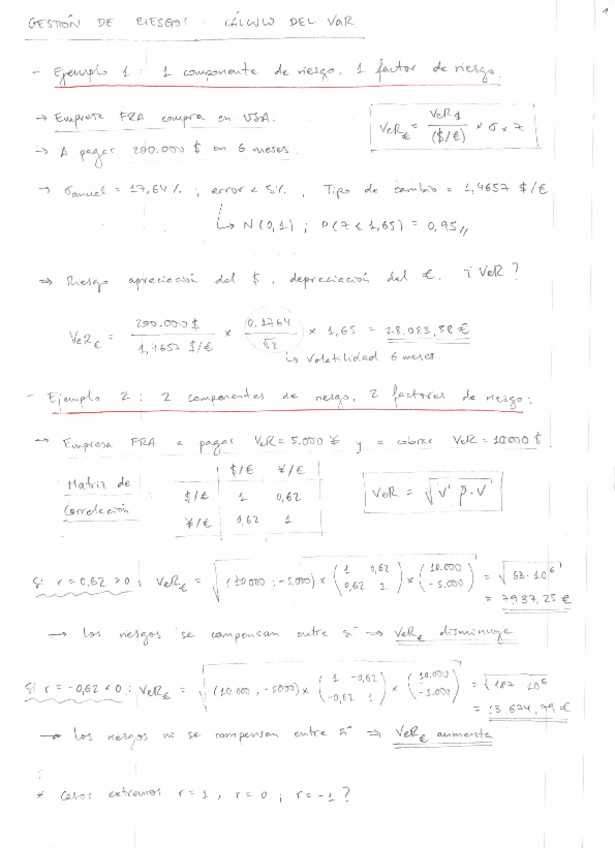 1
GESTIÓN DE RIESGOS: CÁLCULO DEL VaR
- Ejemplo 1: 1 componente de riesgo, 1 factor de riesgo.
→ Empresa FRA compra en USA.
VeR€ = VeR$ / ($/€) × σ × z
→ A pagar 200.000 $ en 6 meses.
→ σanual = 17,64%; error < 5%; Tipo de cambio = 1,4657 $/€
↳ N(0,1); P(z < 1,65) = 0,95//
⇒ Riesgo apreciación del $, depreciación del €. ¿VeR?
VeR€ = 200.000 $ / 1,4657 $/€ × 0,1764 / √2 × 1,65 = 28.083,58 €
↳ Volatilidad 6 meses.
- Ejemplo 2: 2 componentes de riesgo, 2 factores de riesgo:
→ Empresa FRA a pagar VeR = 5.000 ¥ y a cobrar VeR = 10.000 $
Matriz de Correlación:
$/€ ¥/€
$/€ 1 0,62
¥/€ 0,62 1
VeR = √V' ρ · V
Si r = 0,62 > 0; VeR€ = √(10.000; -5.000) × (1 0,62 / 0,62 1) × (10.000 / -5.000) = √63·10⁶
= 7937,25 €
→ Los riesgos se compensan entre sí → VeR€ disminuye
Si r = -0,62 < 0; VeR€ = √(10.000, -5000) × (1 -0,62 / -0,62 1) × (10.000 / -5.000) = √187 10⁶
= 13 674,79 €
→ Los riesgos no se compensan entre sí → VeR€ aumenta.
* Casos extremos r = 1, r = 0; r = -1?